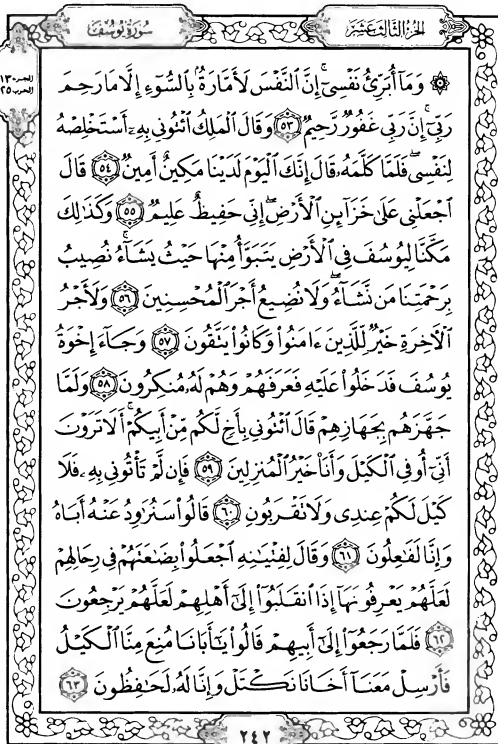 الجزء الثالث عشر
سورة يوسف
الجزء ١٣
الحزب ٢٥
۞ وَمَآ أُبَرِّئُ نَفْسِىٓ ۚ إِنَّ ٱلنَّفْسَ لَأَمَّارَةٌۢ بِٱلسُّوٓءِ إِلَّا مَا رَحِمَ
رَبِّىٓ ۚ إِنَّ رَبِّى غَفُورٌ رَّحِيمٌ ٥٣ وَقَالَ ٱلْمَلِكُ ٱئْتُونِى بِهِۦٓ أَسْتَخْلِصْهُ
لِنَفْسِى ۖ فَلَمَّا كَلَّمَهُۥ قَالَ إِنَّكَ ٱلْيَوْمَ لَدَيْنَا مَكِينٌ أَمِينٌ ٥٤ قَالَ
ٱجْعَلْنِى عَلَىٰ خَزَآئِنِ ٱلْأَرْضِ ۖ إِنِّى حَفِيظٌ عَلِيمٌ ٥٥ وَكَذَٰلِكَ
مَكَّنَّا لِيُوسُفَ فِى ٱلْأَرْضِ يَتَبَوَّأُ مِنْهَا حَيْثُ يَشَآءُ ۚ نُصِيبُ
بِرَحْمَتِنَا مَن نَّشَآءُ ۖ وَلَا نُضِيعُ أَجْرَ ٱلْمُحْسِنِينَ ٥٦ وَلَأَجْرُ
ٱلْآخِرَةِ خَيْرٌ لِّلَّذِينَ ءَامَنُوا۟ وَكَانُوا۟ يَتَّقُونَ ٥٧ وَجَآءَ إِخْوَةُ
يُوسُفَ فَدَخَلُوا۟ عَلَيْهِ فَعَرَفَهُمْ وَهُمْ لَهُۥ مُنكِرُونَ ٥٨ وَلَمَّا
جَهَّزَهُم بِجَهَازِهِمْ قَالَ ٱئْتُونِى بِأَخٍ لَّكُم مِّنْ أَبِيكُمْ ۚ أَلَا تَرَوْنَ
أَنِّىٓ أُوفِى ٱلْكَيْلَ وَأَنَا۠ خَيْرُ ٱلْمُنزِلِينَ ٥٩ فَإِن لَّمْ تَأْتُونِى بِهِۦ فَلَا
كَيْلَ لَكُمْ عِندِى وَلَا تَقْرَبُونِ ٦٠ قَالُوا۟ سَنُرَٰوِدُ عَنْهُ أَبَاهُ
وَإِنَّا لَفَٰعِلُونَ ٦١ وَقَالَ لِفِتْيَٰنِهِ ٱجْعَلُوا۟ بِضَٰعَتَهُمْ فِى رِحَالِهِمْ
لَعَلَّهُمْ يَعْرِفُونَهَآ إِذَا ٱنقَلَبُوٓا۟ إِلَىٰٓ أَهْلِهِمْ لَعَلَّهُمْ يَرْجِعُونَ
٦٢ فَلَمَّا رَجَعُوٓا۟ إِلَىٰٓ أَبِيهِمْ قَالُوا۟ يَٰٓأَبَانَا مُنِعَ مِنَّا ٱلْكَيْلُ
فَأَرْسِلْ مَعَنَآ أَخَانَا نَكْتَلْ وَإِنَّا لَهُۥ لَحَٰفِظُونَ ٦٣
٢٤٢